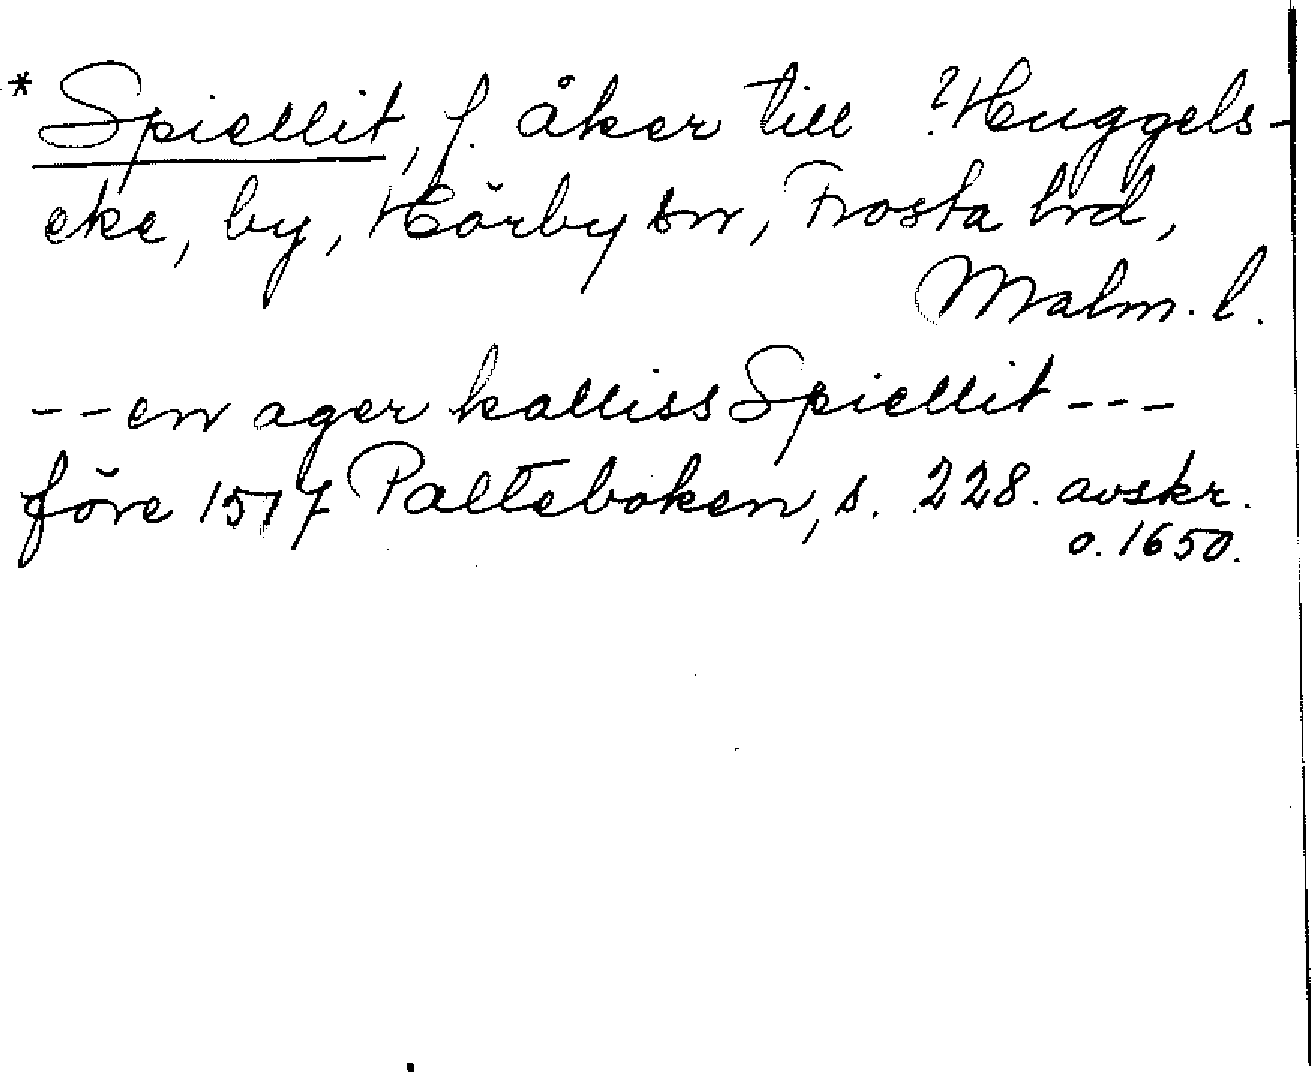 * Spiellit, f. åker till ?Huggels-
eke, by, Hörby sn, Frosta hrd,
Malm. l.
-- en ager kalliss Spiellit ---
före 1517 Palteboken, s. 228. avskr.
o. 1650.